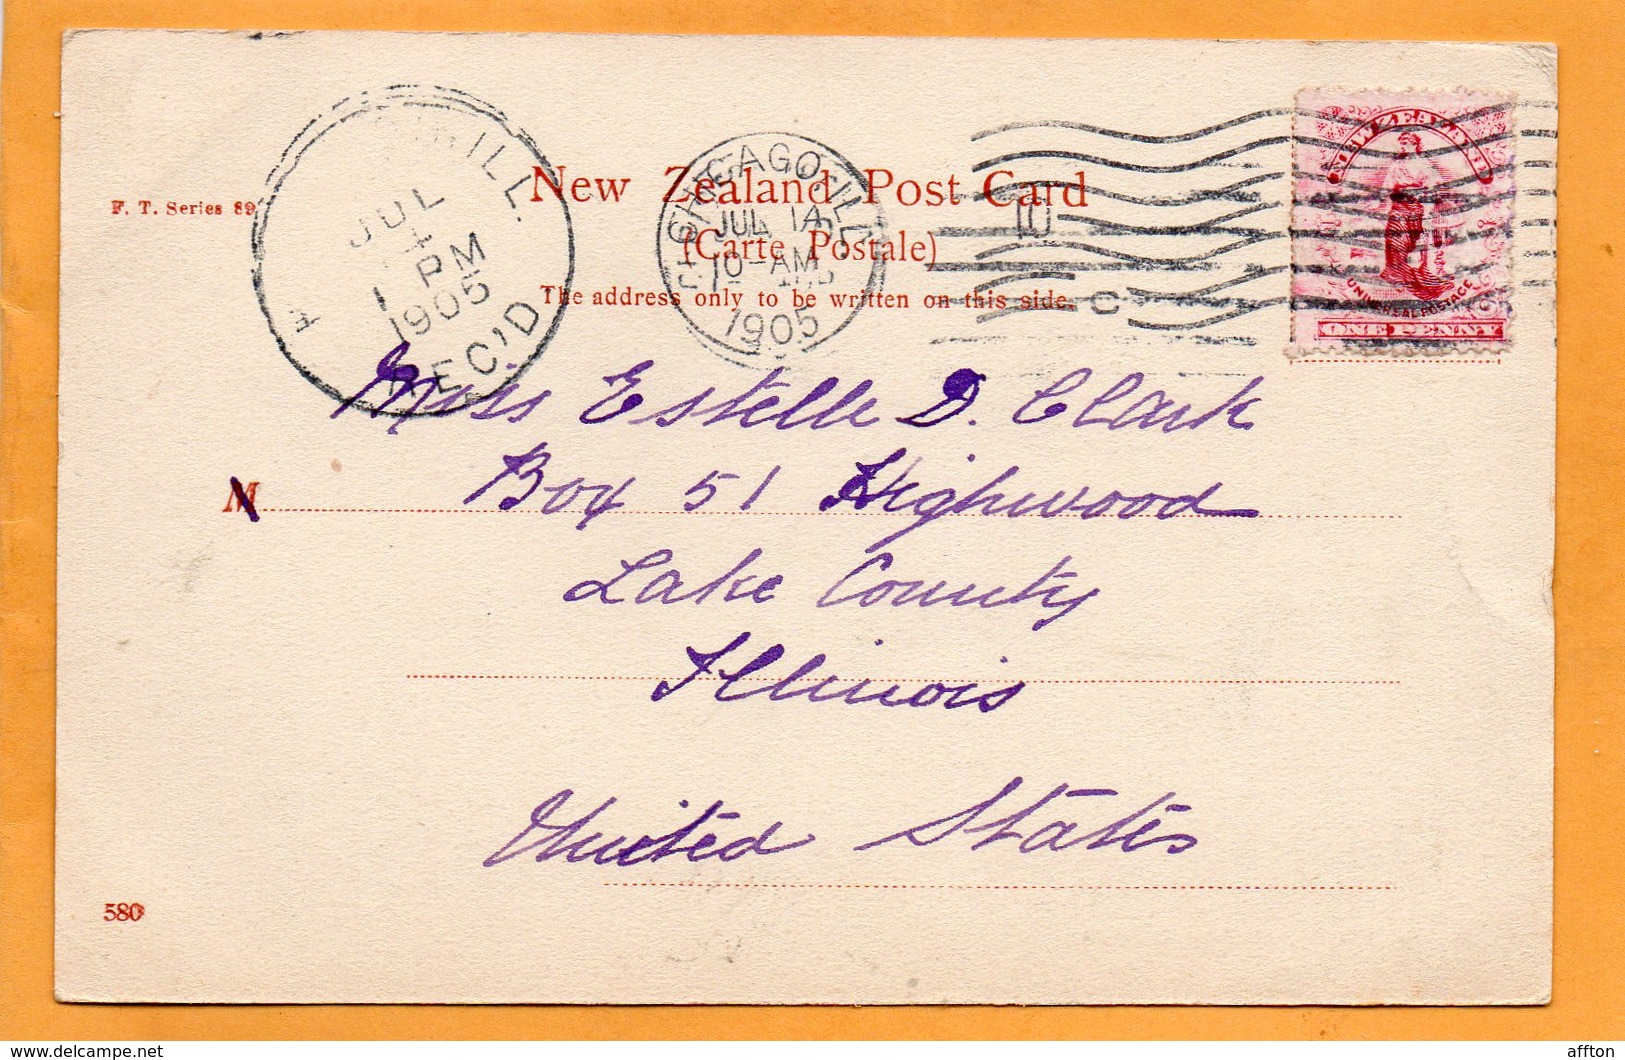 New Zealand Post Card
(Carte Postale)
The address only to be written on this side.
F. T. Series 89
ILL.
JUL
1 PM
1905
REC'D
CHICAGO, ILL.
JUL 1
10-AM
1905
C
UNIVERSAL POSTAGE
ONE PENNY
Miss Estelle D. Clark
M
Box 51 Highwood
Lake County
Illinois
United States
580
delcampe.net
affton